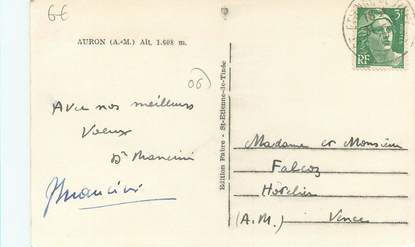 6€
AURON (A.-M.) Alt. 1.608 m.
06
Avec nos meilleurs
Voeux
Dr Mancini
Mancini
Edition Faivre - St-Etienne-de-Tinée
3F
POSTES
RF
Madame et Monsieur
Falcoz
Hôtelier
(A.M.) Vence